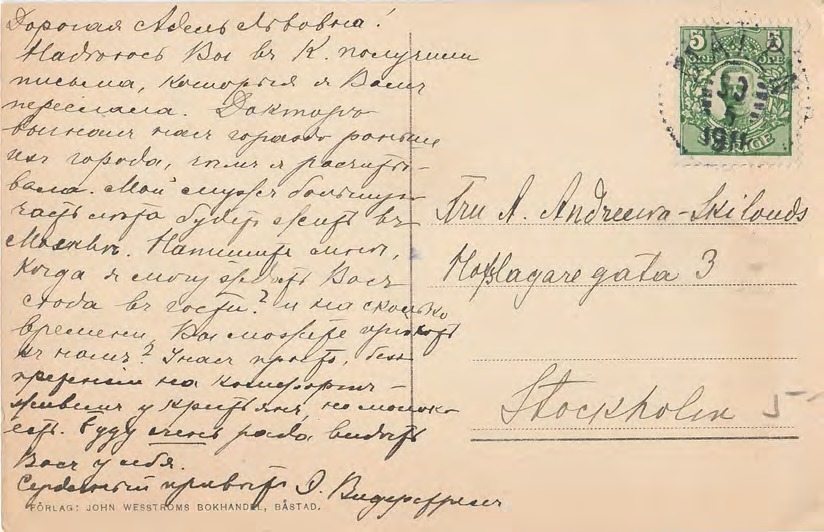 Дорогая Адель Львовна!
Надѣюсь Вы въ К. получили
письма, которыя я Вамъ
переслала. Докторъ
выгналъ насъ гораздо раньше
изъ города, чѣмъ я расчиты-
вала. Мой мужъ большую
часть лѣта будетъ жить въ
Москвѣ. Напишите мнѣ,
когда я могу ждать Васъ
сюда въ гости? и на сколько
времени Вы можете пріѣхать
къ намъ? У насъ просто, безъ
претензій на комфортъ –
живемъ у крестьянъ, но молоко
есть. Буду очень рада видѣть
Васъ у себя.
Сердечный привѣтъ
FÖRLAG: JOHN WESSTRÖMS BOKHANDEL, BÅSTAD.
5 5
1911
Fru A. Andreewa-
3
Stockholm